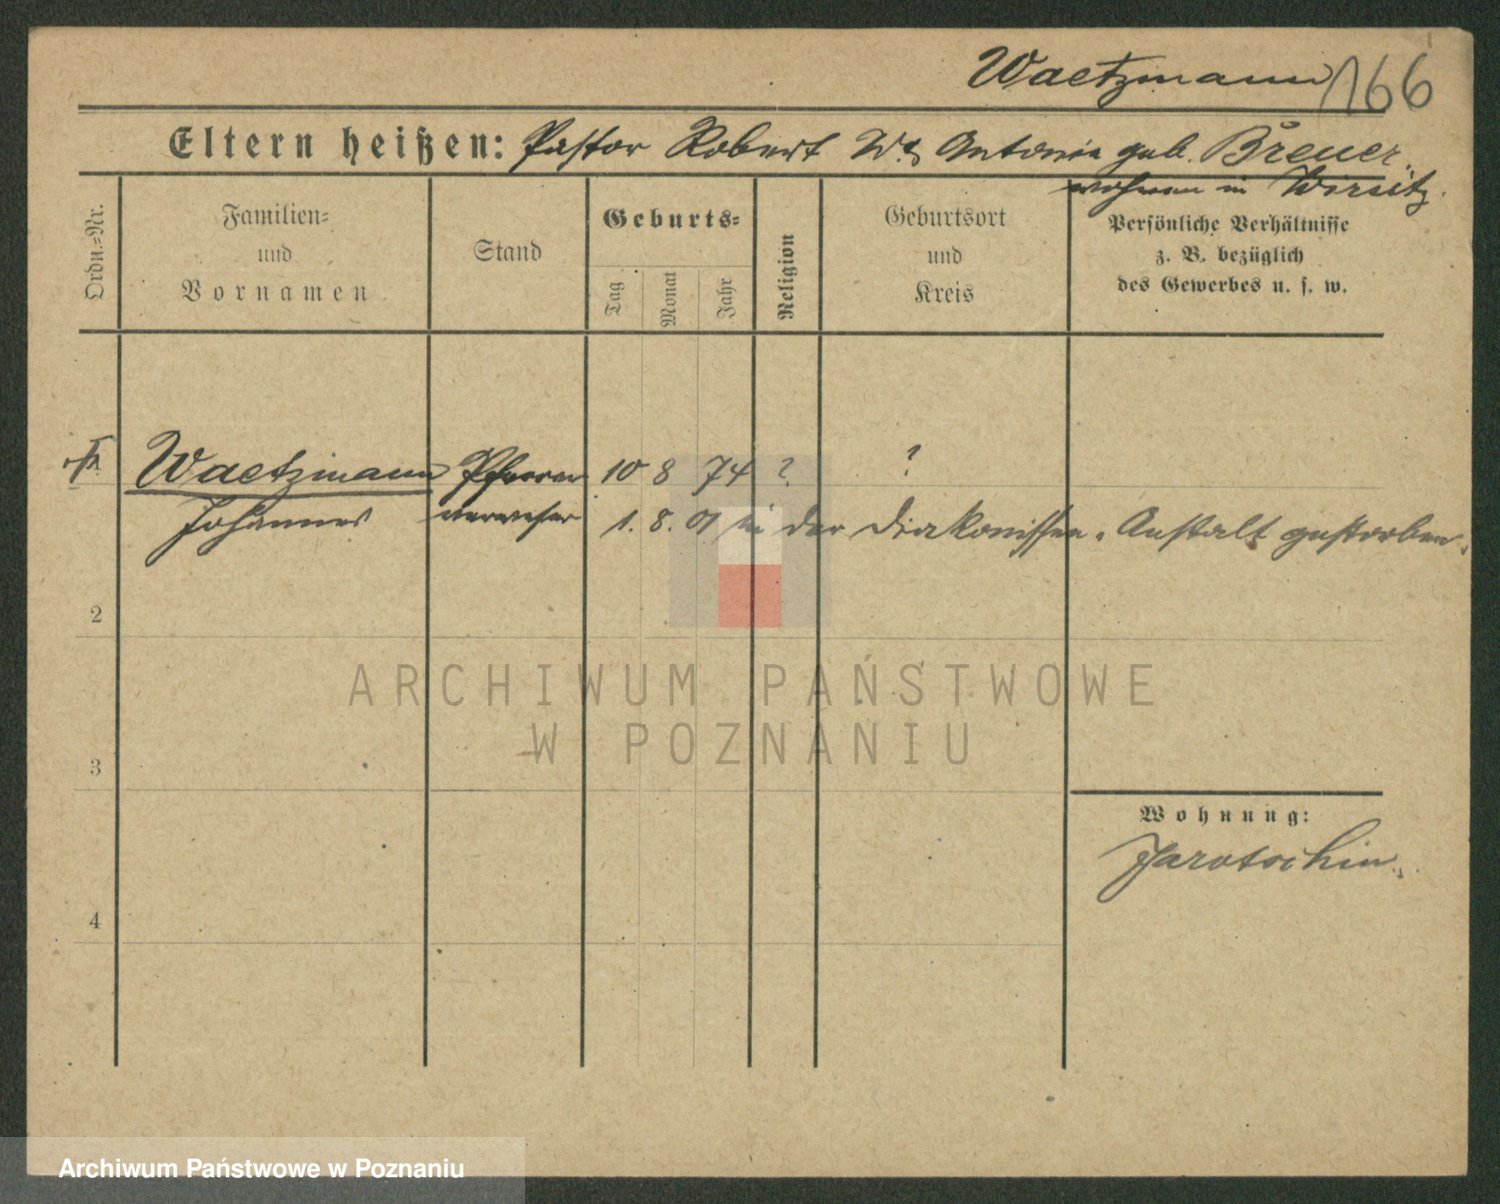 Waetzmann 166
Eltern heißen: Pastor Robert W. Antonie geb. Breuer.
wohnen in Wirsitz.
Ordn.=Nr.
Familien=
und
Vornamen
Stand
Geburts=
Tag
Monat
Jahr
Religion
Geburtsort
und
Kreis
Persönliche Verhältnisse
z. B. bezüglich
des Gewerbes u. s. w.
Waetzmann Pfarrer 10 8 74 ? ?
Johannes verweser 1. 8. 01 in der Diakonissen-Anstalt gestorben.
2
ARCHIWUM PAŃSTWOWE
W POZNANIU
3
Wohnung:
Jarotschin.
4
Archiwum Państwowe w Poznaniu